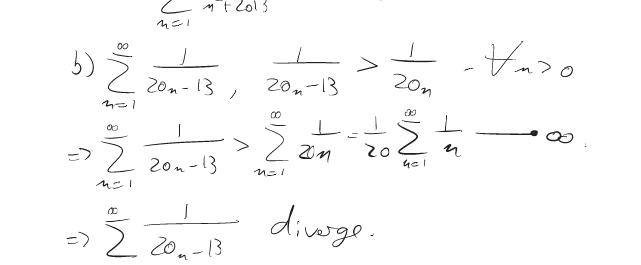 ∑_{n=1} n+2013
b) ∑_{n=1}^{∞} 1/(20n-13) , 1/(20n-13) > 1/(20n) - ∀n>0
=> ∑_{n=1}^{∞} 1/(20n-13) > ∑_{n=1}^{∞} 1/(20n) = 1/20 ∑_{n=1}^{∞} 1/n → ∞.
=> ∑^{∞} 1/(20n-13) diverge.